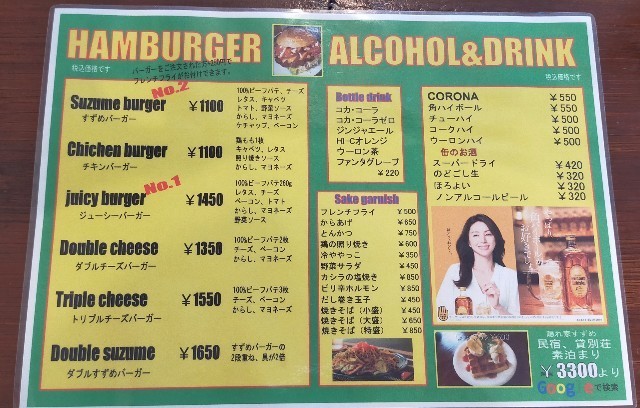 HAMBURGER
税込価格です
バーガーをご注文された方
フレンチフライがお付けできます。
No.2
Suzume burger
￥1100
すずめバーガー
100%ビーフパテ、チーズ
レタス、キャベツ
トマト、野菜ソース
からし、マヨネーズ
ケチャップ、ベーコン
Chichen burger
￥1100
チキンバーガー
鶏もも1枚
キャベツ、レタス
照り焼きソース
からし、マヨネーズ
juicy burger
No.1
￥1450
ジューシーバーガー
100%ビーフパテ260g
レタス、チーズ
ベーコン、トマト
からし、マヨネーズ
野菜ソース
Double cheese
￥1350
ダブルチーズバーガー
100%ビーフパテ2枚
チーズ、ベーコン
からし、マヨネーズ
Triple cheese
￥1550
トリプルチーズバーガー
100%ビーフパテ3枚
チーズ、ベーコン
からし、マヨネーズ
Double suzume
￥1650
ダブルすずめバーガー
すずめバーガーの
2段重ね、具が2倍
ALCOHOL&DRINK
税込価格です
Bottle drink
コカ・コーラ
コカ・コーラゼロ
ジンジャエール
HI-Cオレンジ
ウーロン茶
ファンタグレープ
￥220
CORONA ￥550
角ハイボール ￥550
チューハイ ￥500
コークハイ ￥500
ウーロンハイ ￥500
缶のお酒
スーパードライ ￥420
のどごし生 ￥320
ほろよい ￥320
ノンアルコールビール ￥320
Sake garnish
フレンチフライ ￥500
からあげ ￥650
とんかつ ￥750
鶏の照り焼き ￥600
冷ややっこ ￥350
野菜サラダ ￥450
カシラの塩焼き ￥650
ピリ辛ホルモン ￥850
だし巻き玉子 ￥450
焼きそば（小盛） ￥450
焼きそば（大盛） ￥650
焼きそば（特盛） ￥850
隠れ家すずめ
民宿、貸別荘
素泊まり
￥3300より
Googleで検索